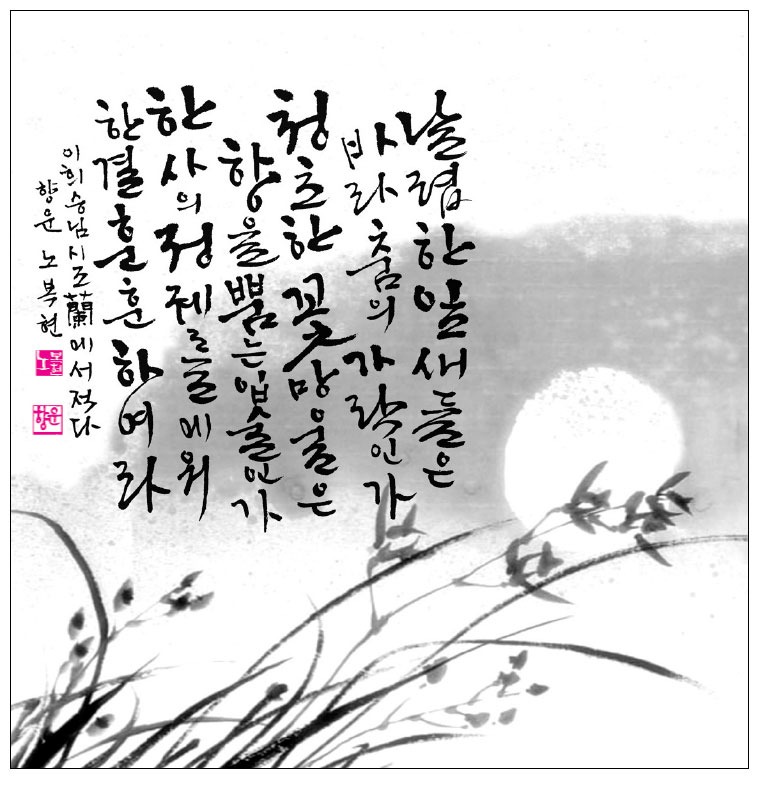 날렵한 잎새들은
바라춤의 가락인가
청초한 꽃망울은
향을 뿜는 입술인가
한사의 정제를 에워
한결 훈훈하여라
이희승님 시조 蘭에서 적다
향운 노복현
노복현
향운